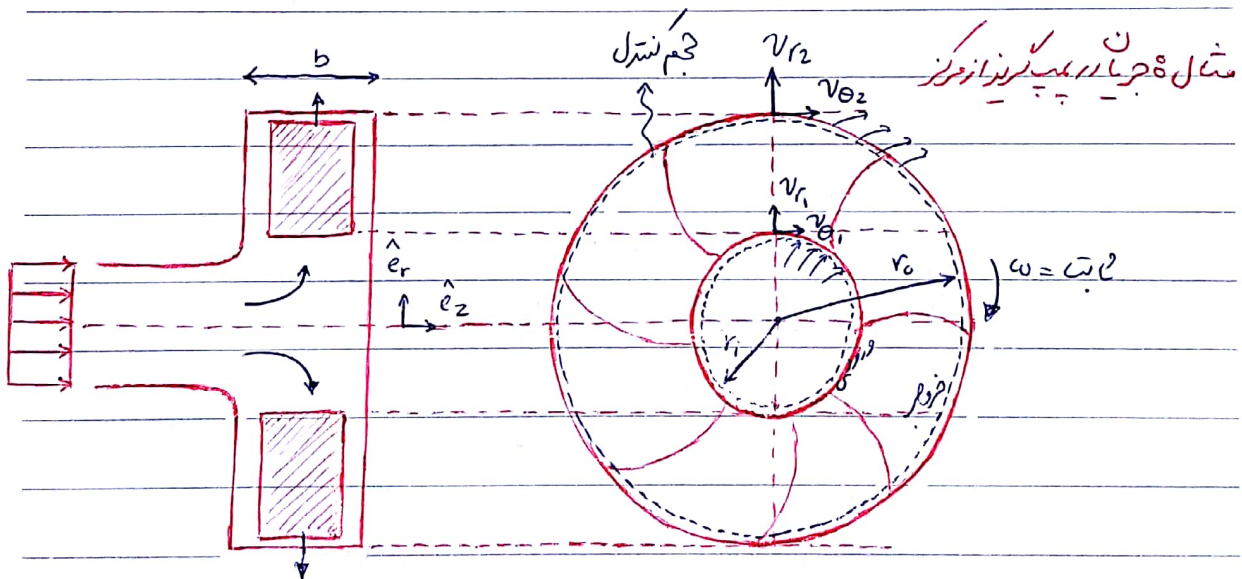 مثال ۵ جریان در پمپ گریز از مرکز
حجم کنترل
b
v_{r2}
v_{θ2}
v_{r1}
v_{θ1}
ê_r
ê_z
r_o
r_i
ω = ثابت
ورودی
خروجی